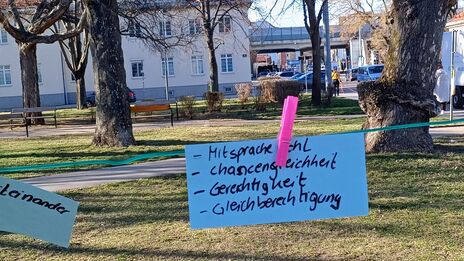 - Mitsprache
- chancengleichheit
- Gerechtigkeit
- Gleichberechtigung